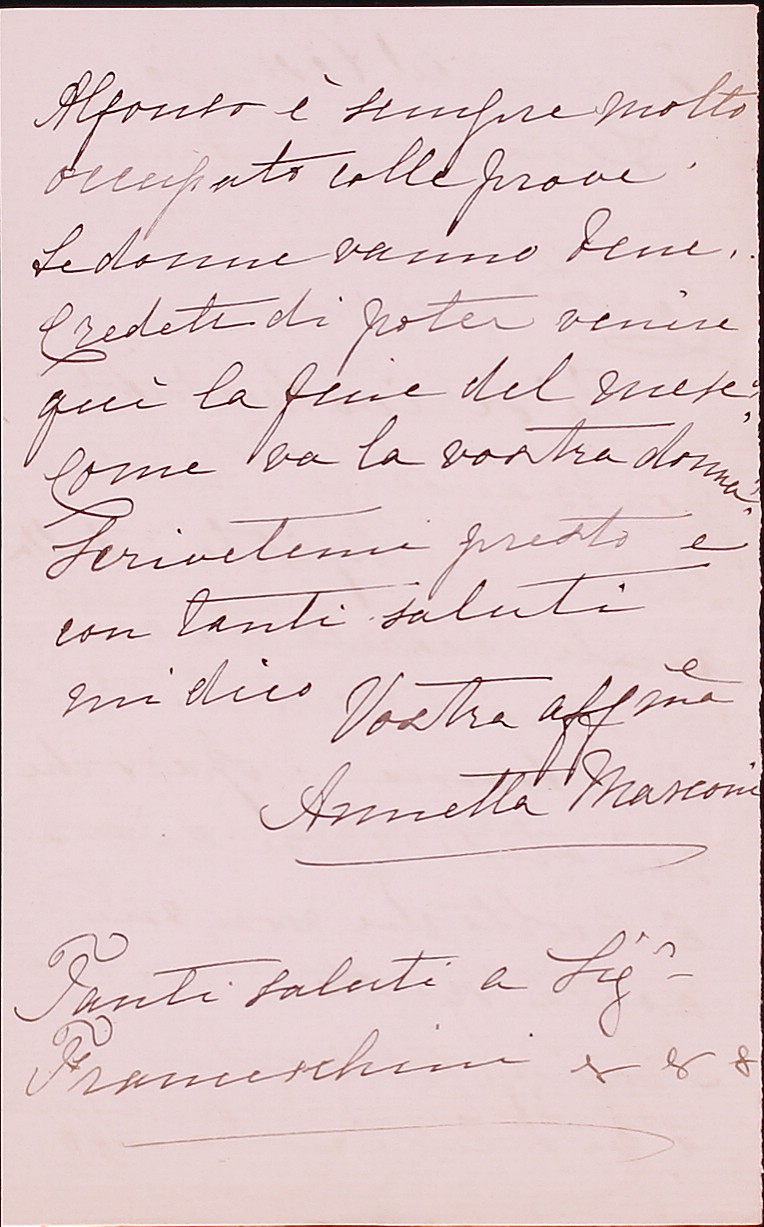 Alfonso è sempre molto
occupato colle prove.
Le donne vanno bene.
Credete di poter venire
quì la fine del mese?
Come va la vostra donna?
Scrivetemi presto e
con tanti saluti
mi dico Vostra affma
Annetta Masconi
Tanti saluti a Sigr
Franceschini & & &